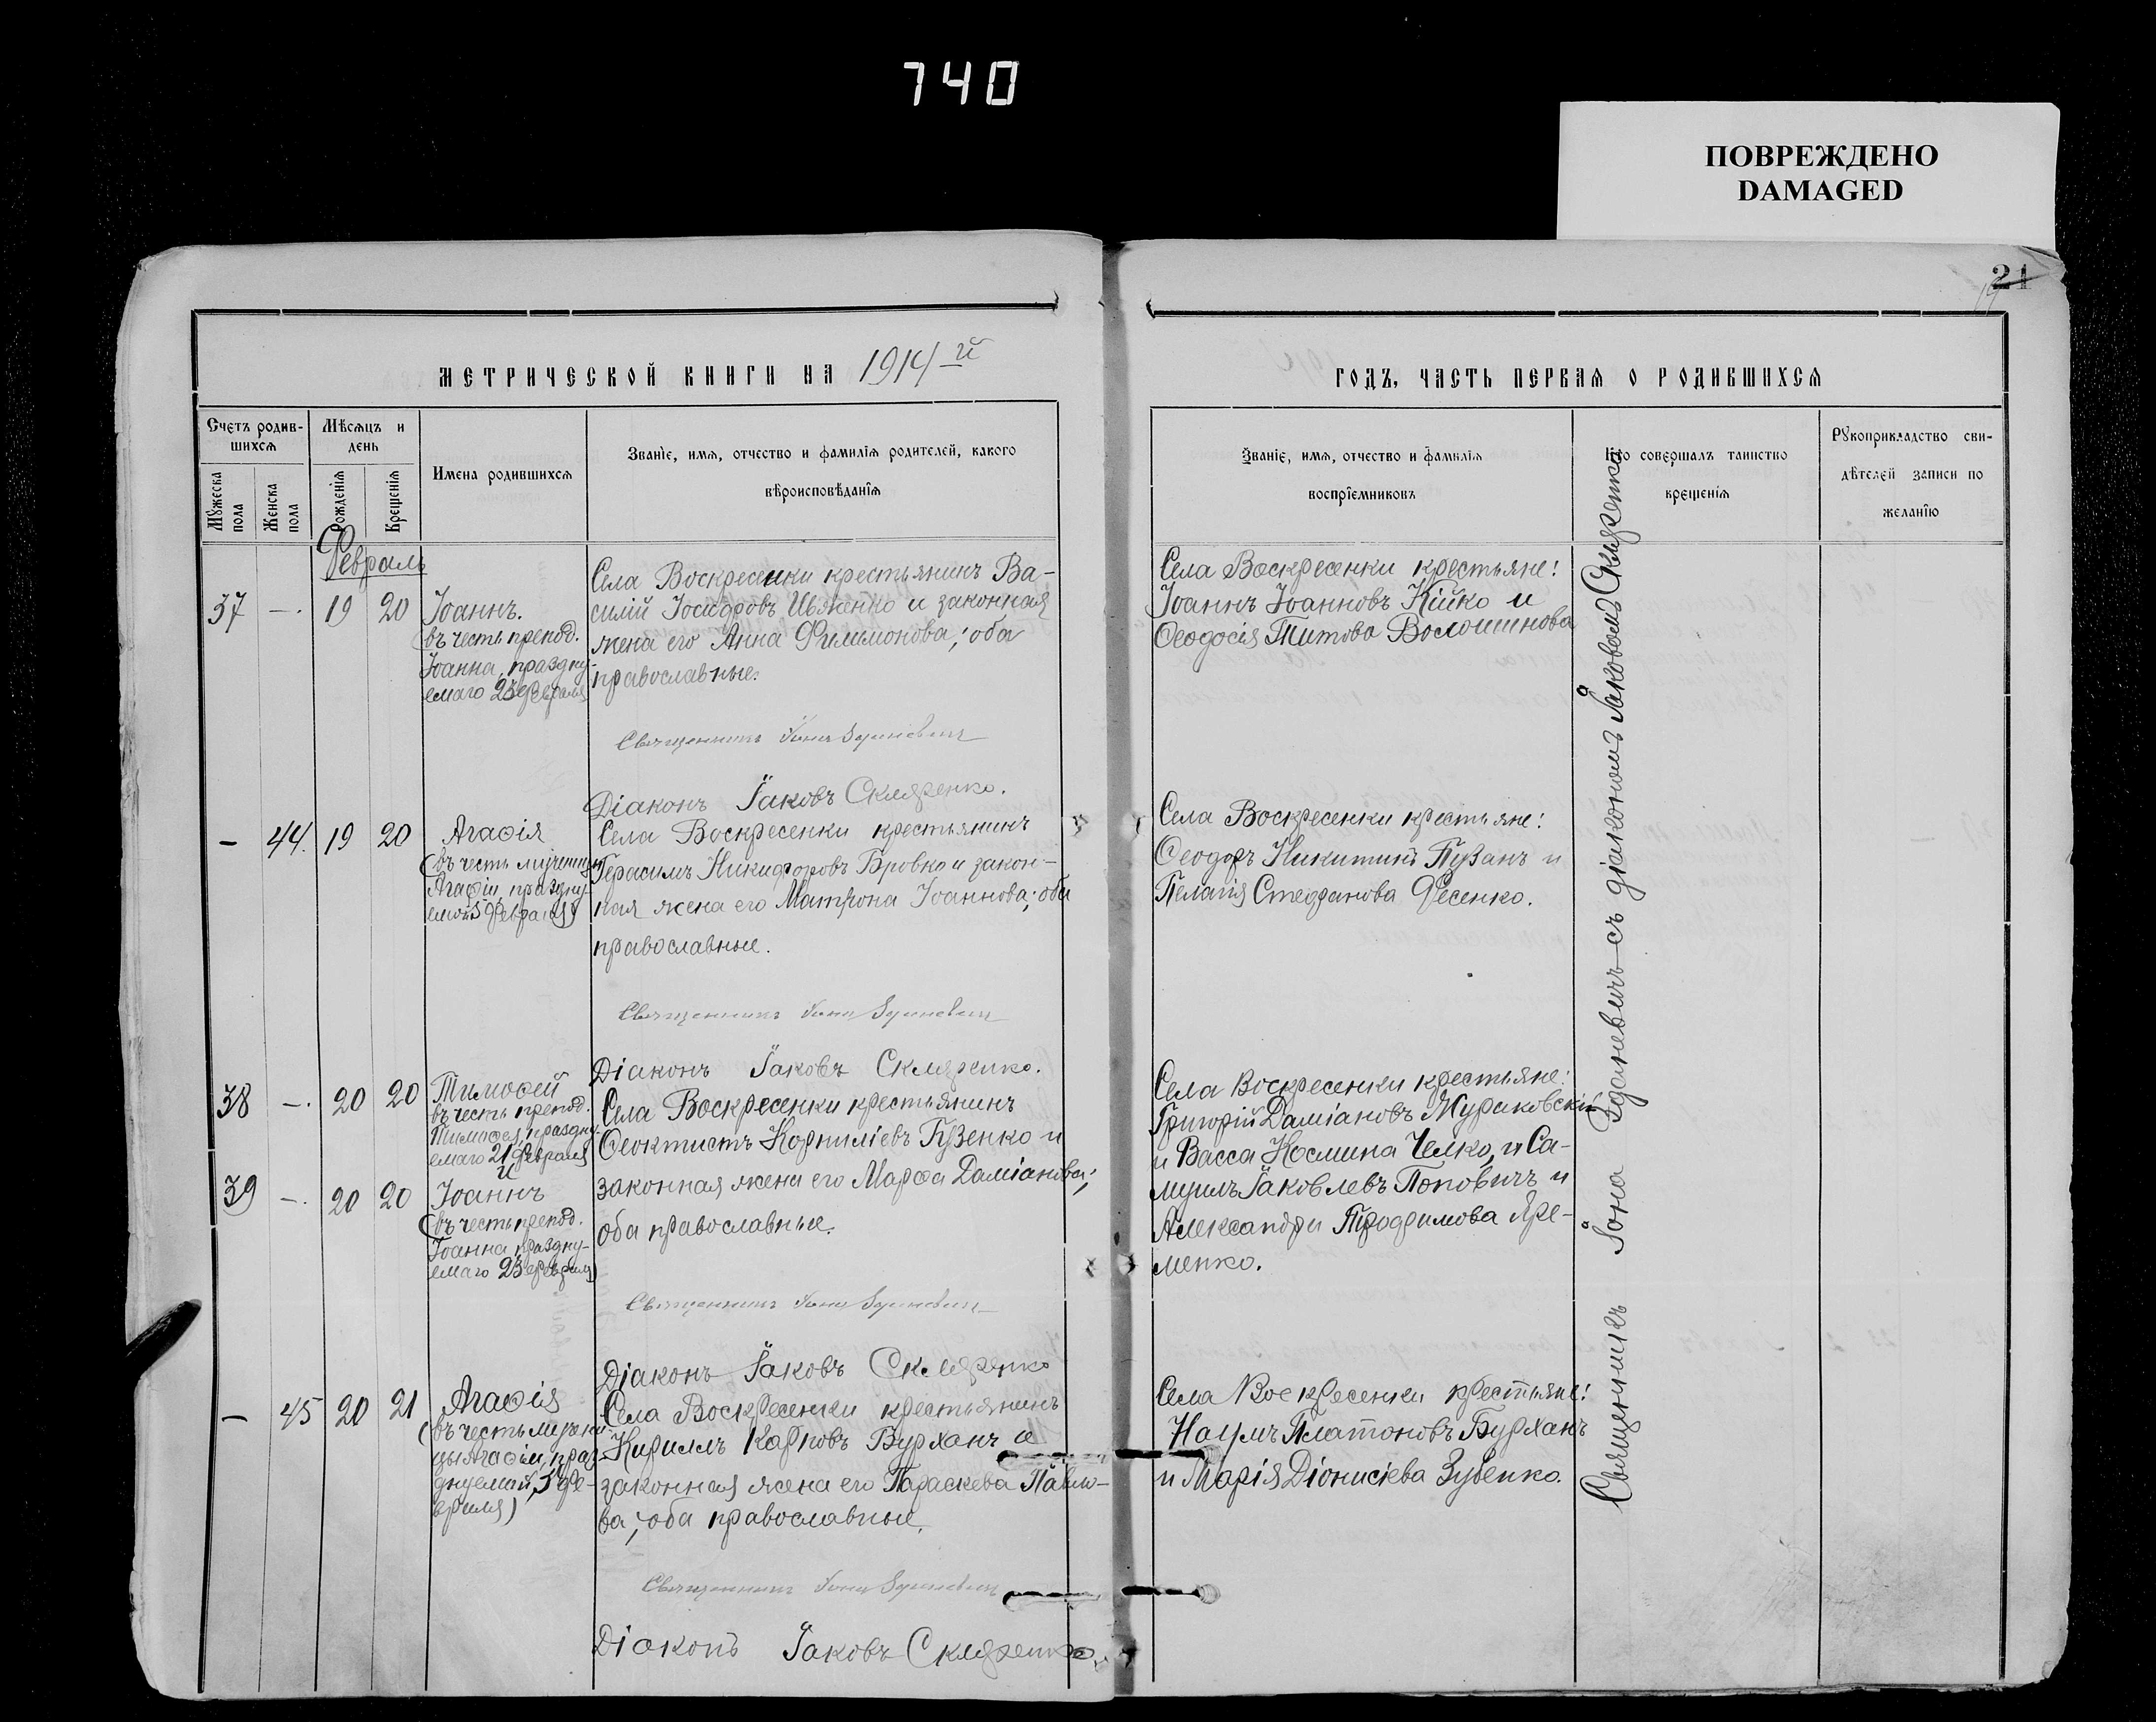 740
ПОВРЕЖДЕНО
DAMAGED
21
МЕТРИЧЕСКОЙ КНИГИ НА 1914-й
ГОДЪ, ЧАСТЬ ПЕРВАЯ О РОДИВШИХСЯ
Счетъ родив-
шихся
Мужеска пола
Женска пола
Мѣсяцъ и
день
Рожденія
Крещенія
Имена родившихся
Званіе, имя, отчество и фамилія родителей, какого
вѣроисповѣданія
Званіе, имя, отчество и фамилія
воспріемниковъ
Кто совершалъ таинство
крещенія
Рукоприкладство сви-
дѣтелей записи по
желанію
Февраль
37 — 19 20 Іоаннъ.
въ честь препод.
Іоанна, праздну-
емаго 23 февраля
Села Воскресенки крестьянинъ Ва-
силій Іосидоровъ Ивженко и законная
жена его Анна Филимонова; оба
православные.
Священникъ Іона Зданевичъ
Діаконъ Іаковъ Скляренко.
Села Воскресенки крестьяне:
Іоаннъ Іоанновъ Кійко и
Ѳеодосія Титова Волошинова
— 44. 19 20 Агаѳія
(въ честь мученицы
Агаѳіи, праздну-
емой 5 февраля)
Села Воскресенки крестьянинъ
Герасимъ Никифоровъ Бровко и закон-
ная жена его Матрона Іоаннова; оба
православные.
Священникъ Іона Зданевичъ
Діаконъ Іаковъ Скляренко.
Села Воскресенки крестьяне:
Ѳеодоръ Никитинъ Пузанъ и
Пелагія Стефанова Фесенко.
38 — 20 20 Тимоѳей
въ честь препод.
Тимоѳея, праздну-
емаго 21 февраля
и
39 — 20 20 Іоаннъ
(въ честь препод.
Іоанна, праздну-
емаго 23 февраля)
Села Воскресенки крестьянинъ
Ѳеоктистъ Корниліевъ Гузенко и
законная жена его Марѳа Даміанова;
оба православные.
Священникъ Іона Зданевичъ
Діаконъ Іаковъ Скляренко
Села Воскресенки крестьяне:
Григорій Даміановъ Жураковскій
и Васса Косьмина Челко, и Са-
муилъ Іаковлевъ Поповичъ и
Александра Трофимова Яре-
менко.
— 45 20 21 Агаѳія
(въ честь мучени-
цы Агаѳіи, праз-
днуемой 5 фе-
враля)
Села Воскресенки крестьянинъ
Кириллъ Карповъ Бурханъ и
законная жена его Параскева Павло-
ва; оба православные.
Священникъ Іона Зданевичъ
Діаконъ Іаковъ Скляренко.
Села Воскресенки крестьяне:
Наумъ Платоновъ Бурханъ
и Марія Діонисіева Зубенко.
Священникъ Іона Зданевичъ съ діакономъ Іаковомъ Скляренко.